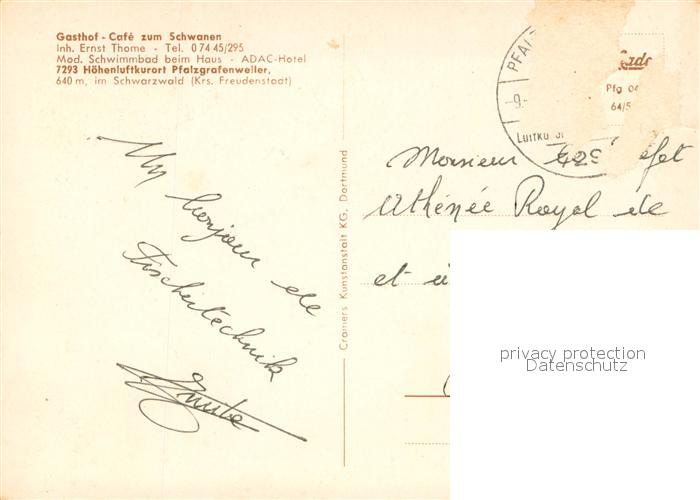 Gasthof - Café zum Schwanen
Inh. Ernst Thome - Tel. 0 74 45/295
Mod. Schwimmbad beim Haus - ADAC-Hotel
7293 Höhenluftkurort Pfalzgrafenweiler,
640 m, im Schwarzwald (Krs. Freudenstadt)
Un bonjour de
Fischertechnik
Cramers Kunstanstalt KG, Dortmund
PFALZ
-9.-
Luftku
Pfg 04
64/5
Monsieur
Athénée Royal de
et
privacy protection
Datenschutz